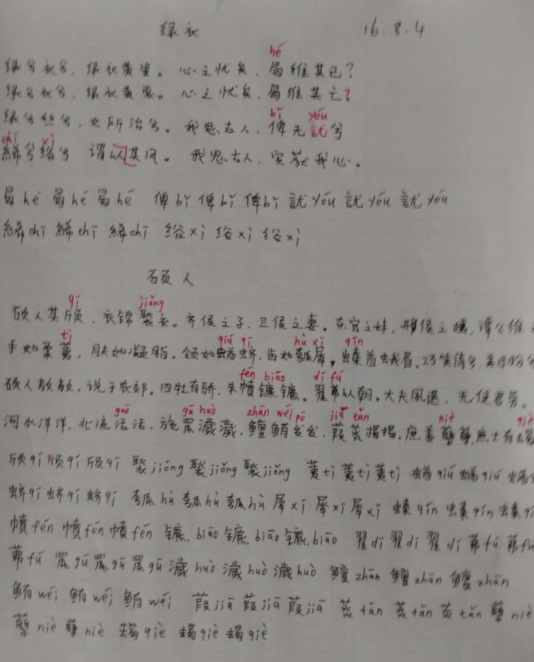 绿衣 16.8.4
hé
绿兮衣兮，绿衣黄里。心之忧矣，曷维其已？
绿兮衣兮，绿衣黄裳。心之忧矣，曷维其亡？
bǐ yóu
绿兮丝兮，女所治兮。我思古人，俾无訧兮
chī xì
絺兮绤兮 谓以其风。我思古人，实获我心。
曷hé 曷hé 曷hé 俾bǐ 俾bǐ 俾bǐ 訧yóu 訧yóu 訧yóu
絺chī 絺chī 絺chī 绤xì 绤xì 绤xì
硕人
qí jiǒng
硕人其颀，衣锦褧衣。齐侯之子，卫侯之妻。东宫之妹，邢侯之姨，谭公维
tí qiú qí hù xī qín
手如柔荑，肤如凝脂。领如蝤蛴，齿如瓠犀。螓首蛾眉，巧笑倩兮，美目盼兮
fén biāo dí fú
硕人敖敖，说于农郊。四牡有骄，朱幩镳镳。翟茀以朝。大夫夙退，无使君劳。
guō gū huò zhān wěi pō jiā tǎn niè qiè
河水洋洋，北流活活，施罛濊濊，鳣鲔发发，葭菼揭揭，庶姜孽孽，庶士有朅
颀qí 颀qí 颀qí 褧jiǒng 褧jiǒng 褧jiǒng 荑tí 荑tí 荑tí 蝤qiú 蝤qiú 蝤
蛴qí 蛴qí 蛴qí 瓠hù 瓠hù 瓠hù 犀xī 犀xī 犀xī 螓qín 螓qín 螓qí
幩fén 幩fén 幩fén 镳biāo 镳biāo 镳biāo 翟dí 翟dí 翟dí 茀fú 茀fú
茀fú 罛gū 罛gū 罛gū 濊huò 濊huò 濊huò 鳣zhān 鳣zhān 鳣zhān
鲔wěi 鲔wěi 鲔wěi 葭jiā 葭jiā 葭jiā 菼tǎn 菼tǎn 菼tǎn 孽niè
孽niè 孽niè 朅qiè 朅qiè 朅qiè